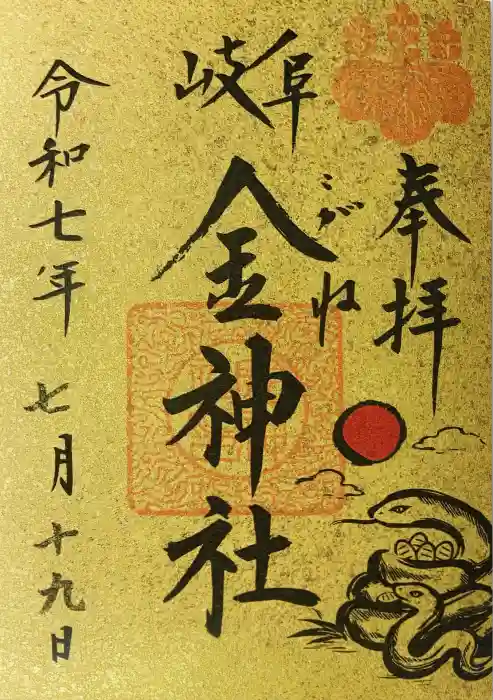 奉拝
岐阜
金神社
こがね
令和七年 七月 十九日